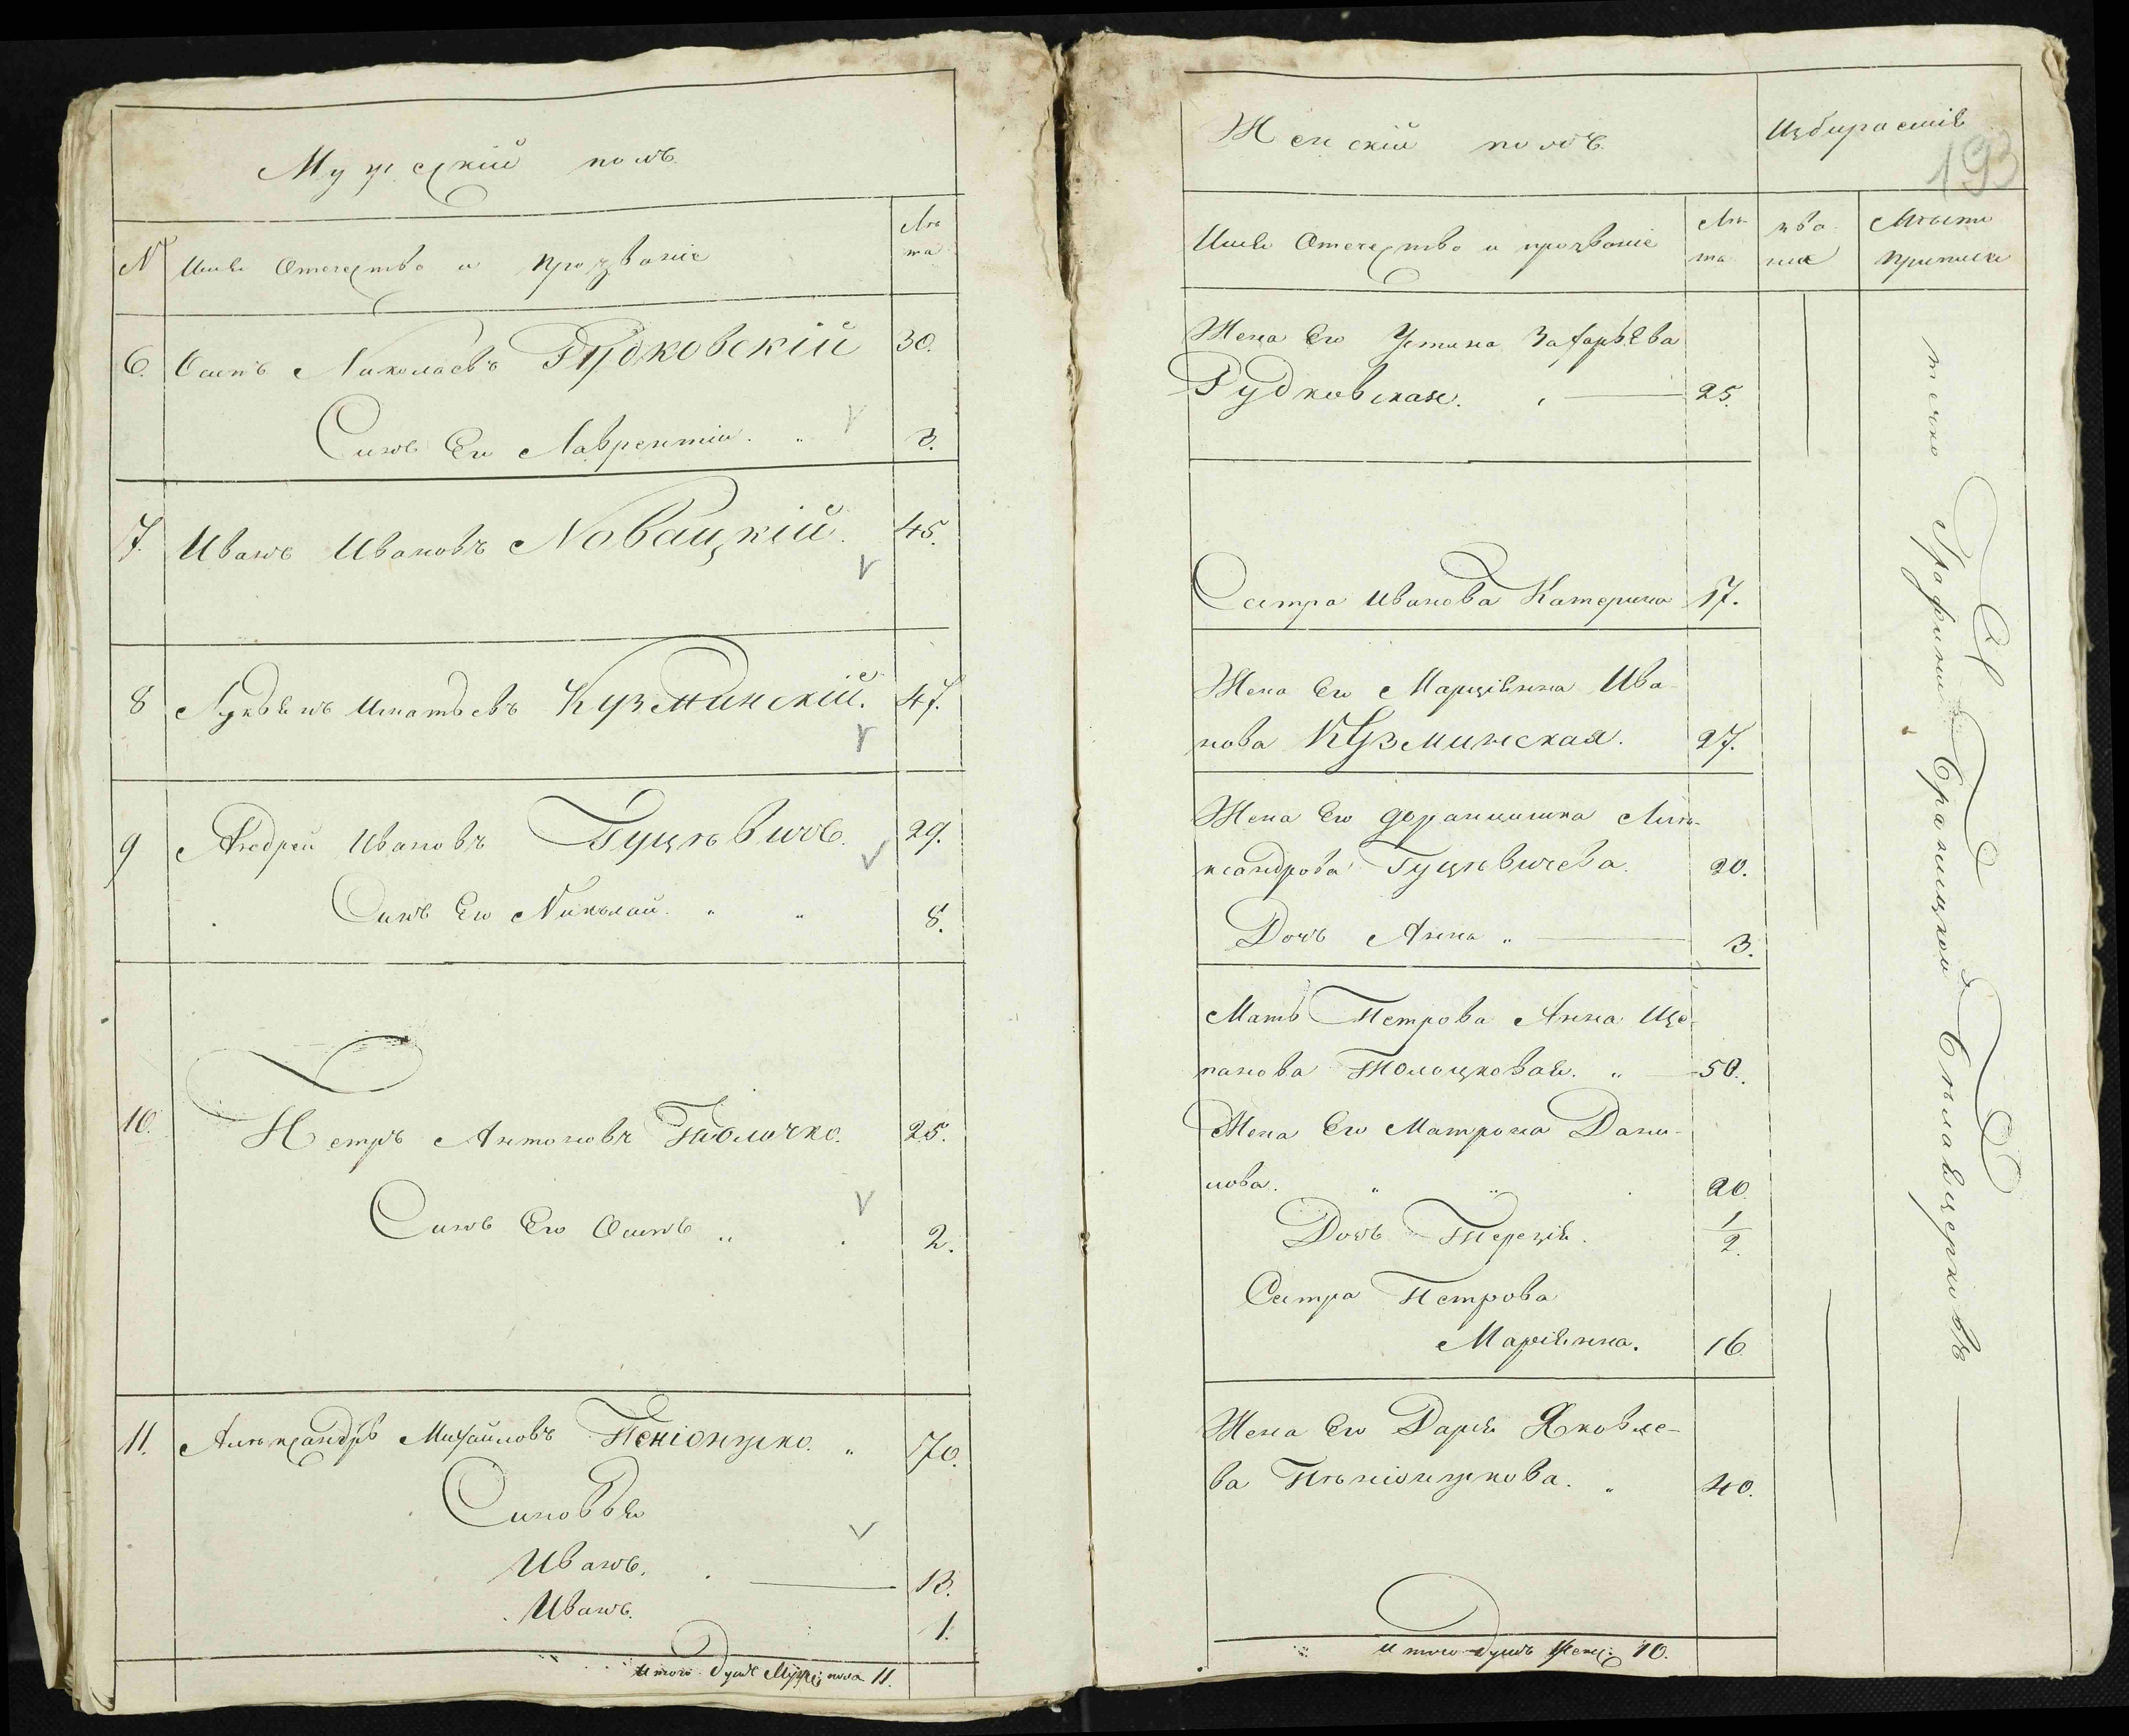 Мужескій полъ
№ Имя Отечество и прозваніе Лѣ
та
6. Осипъ Николаевъ Рудковскій 30.
Синъ Его Лаврентіи. 3.
7. Иванъ Ивановъ Новацкій. 45.
8 Лукьянъ Игнатьевъ Кузминскій. 47.
9 Андрей Ивановъ Гуцѣвичъ. 29.
Синъ Его Николай. 8.
10. Петръ Антоновъ Толочко. 25.
Синъ Его Осипъ 2.
11. Алѣксандръ Михайловъ Пеніонжко. 70.
Синовья
Иванъ. 13.
Иванъ. 1.
Итого душъ Муже: пола 11.
Женскій полъ Избираемів
193
Имя Отечество и прозваніе Лѣ зва Мѣсто
та ніе приписки
Жена Его Устина Захарьева
Рудковская. 25.
Сестра Иванова Катерина 17.
Жена Его Марціянна Ива-
нова Кузминская. 27.
Жена Его Францишка Алѣ-
ксандрова Гуцѣвичева. 20.
Дочъ Анна 3.
Мать Петрова Анна Ще-
панова Толоцковая. 50.
Жена Его Матрона Дани-
лова. 20
Дочъ Терезія. 1/2.
Сестра Петрова
Маріянна. 16
Жена Его Дарія Яковле-
ва Пѣніонжкова. 40.
Итого душъ Женс: 10.
Графини Браницкой Бѣлая церковь